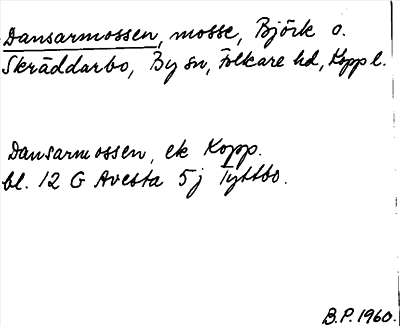 Dansarmossen, mosse, Björk o.
Skräddarbo, By sn, Folkare hd, Kopp l.
Dansarmossen, ek Kopp.
bl. 12 G Avesta 5j Tyttbo.
B.P. 1960.